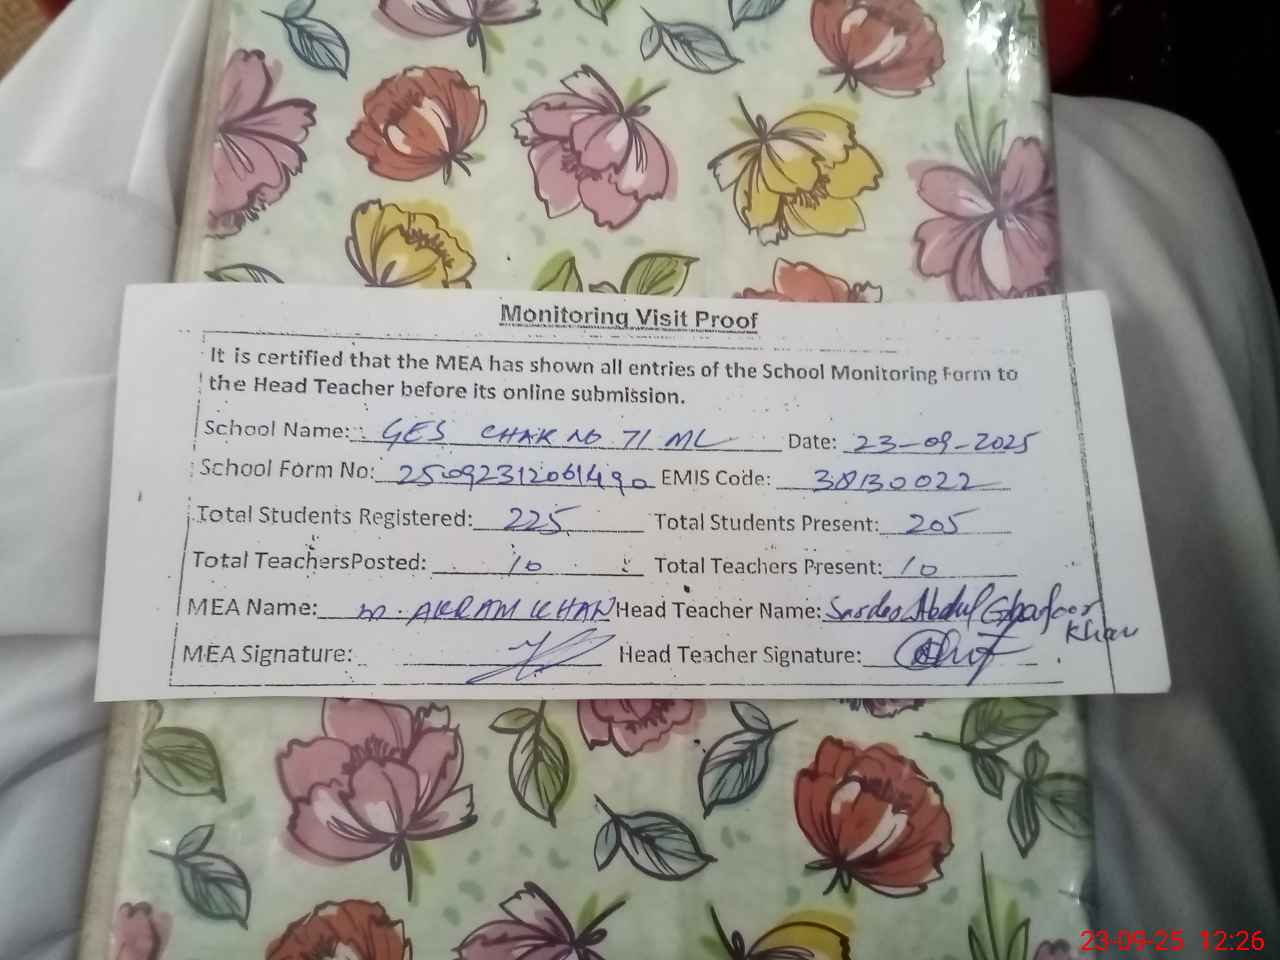 Monitoring Visit Proof
It is certified that the MEA has shown all entries of the School Monitoring Form to
the Head Teacher before its online submission.
School Name: GES CHAK NO 71 ML Date: 23-09-2025
School Form No: EMIS Code: 38130022
Total Students Registered: 225 Total Students Present: 205
Total TeachersPosted: 10 Total Teachers Present: 10
MEA Name: M. AKRAM KHAN Head Teacher Name: Sardar Abdul Ghafoor
Khan
MEA Signature: Head Teacher Signature:
23-09-25 12:26